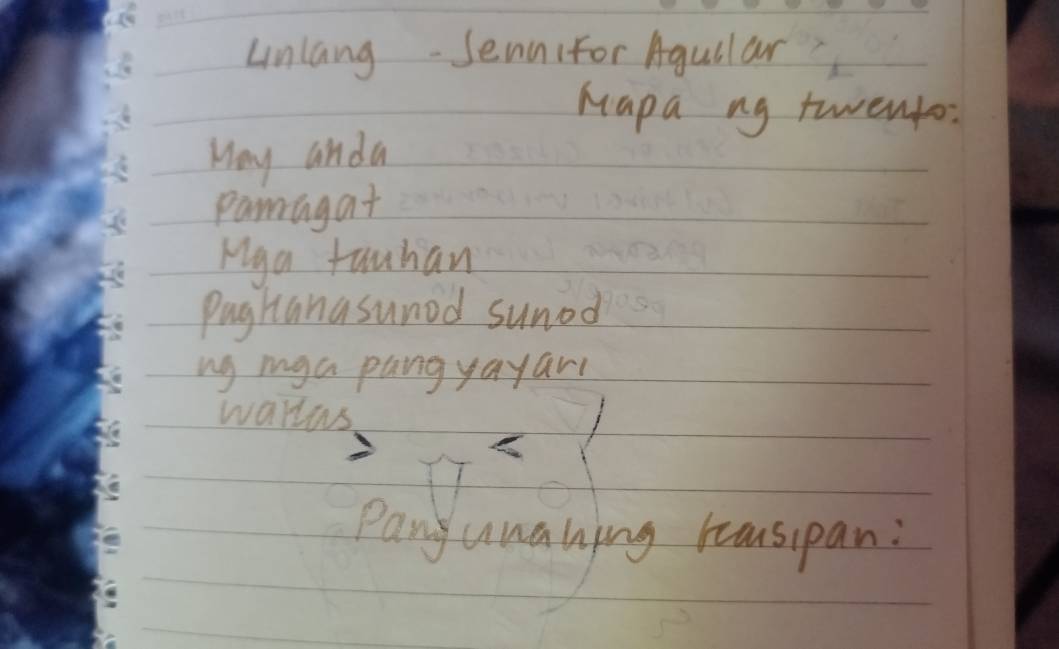 Linlang - Jennifor Aguilar
Mapa ng kwento:
May anda
Pamagat
Mga tauhan
Paghanasunod sunod
ng mga pangyayari
Wakas
Pangunahing kaisipan: